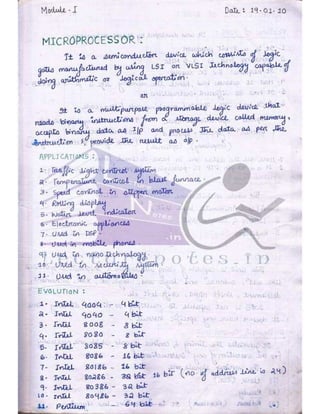 Module - I Date : 19-01-20
MICROPROCESSOR :
It is a semiconductor device which consists of logic
gates manufactured by using LSI or VLSI Technology capable of
doing arithmetic or logical operation.
or
It is a multipurpose programmable logic device that
reads binary instructions from a storage device called memory,
accepts binary data as I/p and process the data as per the
instruction & provide the result as o/p.
APPLICATIONS :
1. Traffic light control system
2. Temperature control in blast furnace
3. Speed control in stepper motor
4. Rolling display
5. Water level indicator
6. Electronic appliances
7. Used in DSP
8. Used in mobile phones
9) Used in nano technology
10. Used in security system
11. Used in automobiles
notes.in
EVOLUTION :
1. Intel 4004 - 4 bit
2. Intel 4040 - 4 bit
3. Intel 8008 - 8 bit
4. Intel 8080 - 8 bit
5. Intel 8085 - 8 bit
6. Intel 8086 - 16 bit
7. Intel 80186 - 16 bit
8. Intel 80286 - 16 bit (no of address line is 24)
9. Intel 80386 - 32 bit
10. Intel 80486 - 32 bit
11. Pentium - 64 bit